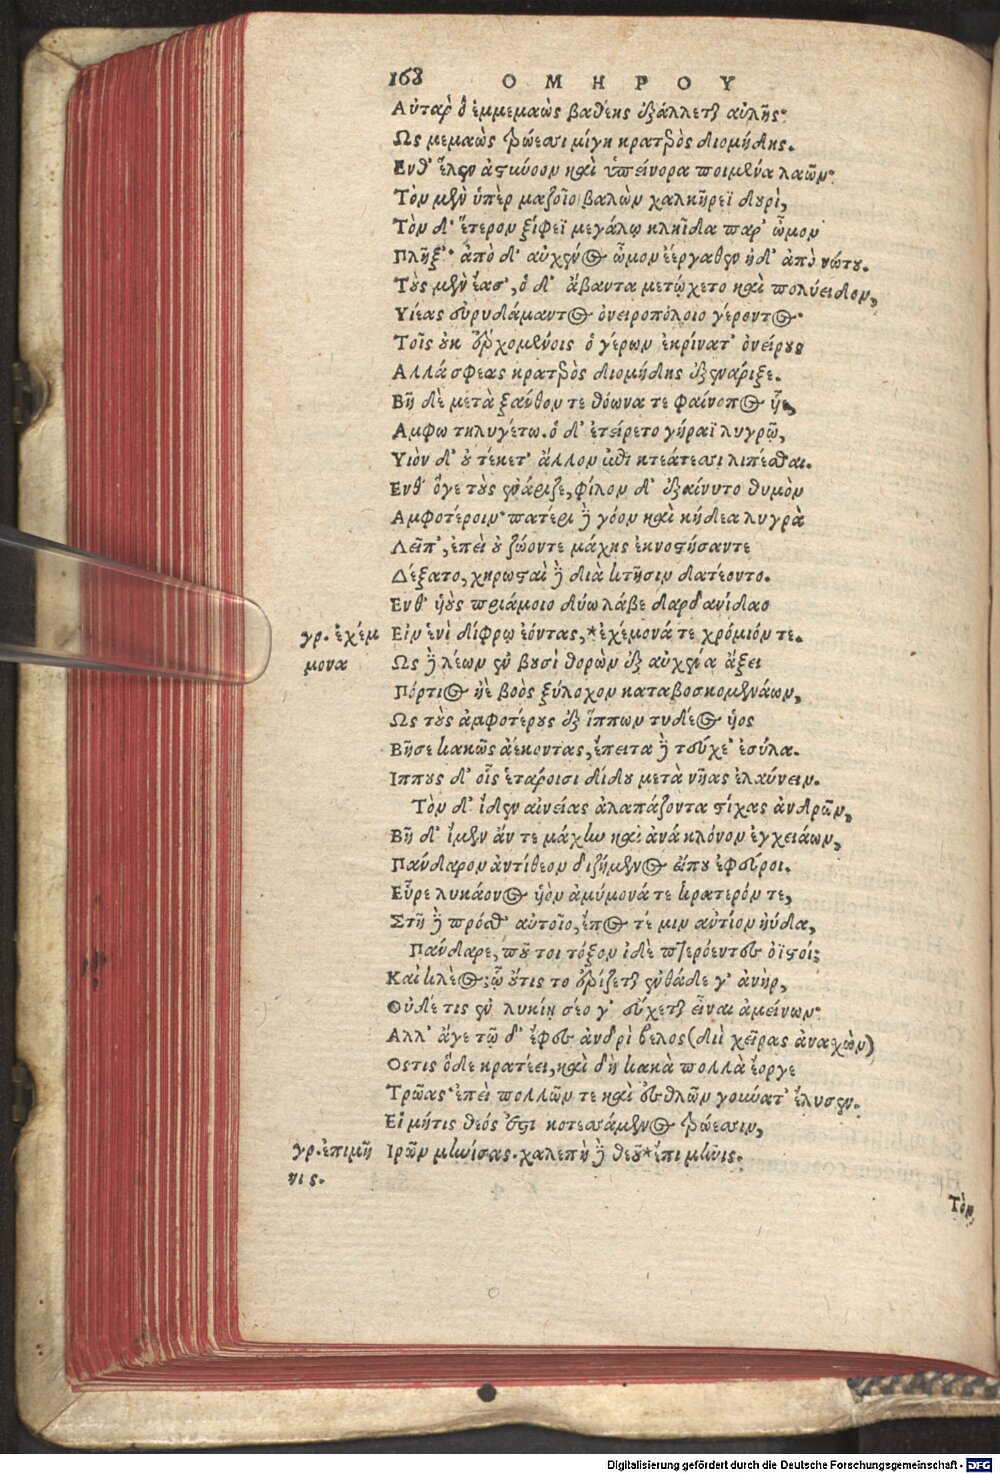 168 ΟΜΗΡΟΥ
Αὐτὰρ ὁ ἐμμεμαὼς βαθέης ἐξάλλεται αὐλῆς·
Ως μεμαὼς τρώεσσι μίγη κρατερὸς διομήδης.
Ενθ' ἕλεν ἀστύνοον καὶ ὑπείνορα ποιμένα λαῶν·
Τὸν μὲν ὑπὲρ μαζοῖο βαλὼν χαλκήρεϊ δουρὶ,
Τὸν δ' ἕτερον ξίφεϊ μεγάλῳ κληῖδα παρ' ὦμον
Πλῆξ'· ἀπὸ δ' αὐχένος ὦμον ἐέργαθεν ἠδ' ἀπὸ νώτου.
Τοὺς μὲν ἔασ', ὁ δ' ἄβαντα μετῴχετο καὶ πολύειδον,
Υἱέας εὐρυδάμαντος ὀνειροπόλοιο γέροντος·
Τοῖς οὐκ ἐρχομένοις ὁ γέρων ἐκρίνατ' ὀνείρους
Αλλά σφεας κρατερὸς διομήδης ἐξενάριξε.
Βῆ δὲ μετὰ ξάνθον τε θόωνα τε φαίνοπος υἷε,
Αμφω τηλυγέτω. ὁ δ' ἐτείρετο γήραϊ λυγρῷ,
Υιὸν δ' οὐ τέκετ' ἄλλον ἐπὶ κτεάτεσσι λιπέσθαι.
Ενθ' ὅγε τοὺς ἐνάριζε, φίλον δ' ἐξαίνυτο θυμὸν
Αμφοτέροιν· πατέρι δὲ γόον καὶ κήδεα λυγρὰ
Λεῖπ', ἐπεὶ οὐ ζώοντε μάχης ἐκνοστήσαντε
Δέξατο, χηρωσταὶ δὲ διὰ κτῆσιν δατέοντο.
Ενθ' υἱοὺς πριάμοιο δύω λάβε δαρδανίδαο
γρ. ἐχέμ Εἰν ἑνὶ δίφρῳ ἐόντας, *ἐχέμονά τε χρόμιόν τε.
μονα Ως δὲ λέων ἐν βουσὶ θορὼν ἐξ αὐχένα ἄξει
Πόρτιος ἠὲ βοὸς ξύλοχον καταβοσκομενάων,
Ως τοὺς ἀμφοτέρους ἐξ ἵππων τυδέος υἱὸς
Βῆσε κακῶς ἀέκοντας, ἔπειτα δὲ τεύχε' ἐσύλα.
Ιππους δ' οἷς ἑτάροισι δίδου μετὰ νῆας ἐλαύνειν.
Τὸν δ' ἴδεν αἰνείας ἀλαπάζοντα στίχας ἀνδρῶν,
Βῆ δ' ἴμεν ἄν τε μάχην καὶ ἀνὰ κλόνον ἐγχειάων,
Πάνδαρον ἀντίθεον διζήμενος εἴπου ἐφεύροι.
Εὗρε λυκάονος υἱὸν ἀμύμονά τε κρατερόν τε,
Στῆ δὲ πρόσθ' αὐτοῖο, ἔπος τέ μιν αὐτίον ηὔδα,
Πάνδαρε, ποῦ τοι τόξον ἰδὲ πτερόεντες ὀϊστοί;
Καὶ κλέος; ᾧ οὔτις τοι ἐρίζεται ἐνθάδε γ' ἀνὴρ,
Οὐδέ τις ἐν λυκίῃ σέο γ' εὔχεται εἶναι ἀμείνων·
Αλλ' ἄγε τῷ δ' ἔφες ἀνδρὶ βέλος (διῒ χεῖρας ἀνασχὼν)
Οστις ὅδε κρατέει, καὶ δὴ κακὰ πολλὰ ἔοργε
Τρῶας· ἐπεὶ πολλῶν τε καὶ ἐσθλῶν γούνατ' ἔλυσεν.
Εἰ μήτις θεός ἐστι κοτεσσάμενος τρώεσσιν,
γρ. ἐπιμῆ Ιρῶν μηνίσας. χαλεπὴ δὲ θεοῦ *ἐπι μῆνις.
νις.
Τὸν
Digitalisierung gefördert durch die Deutsche Forschungsgemeinschaft - DFG